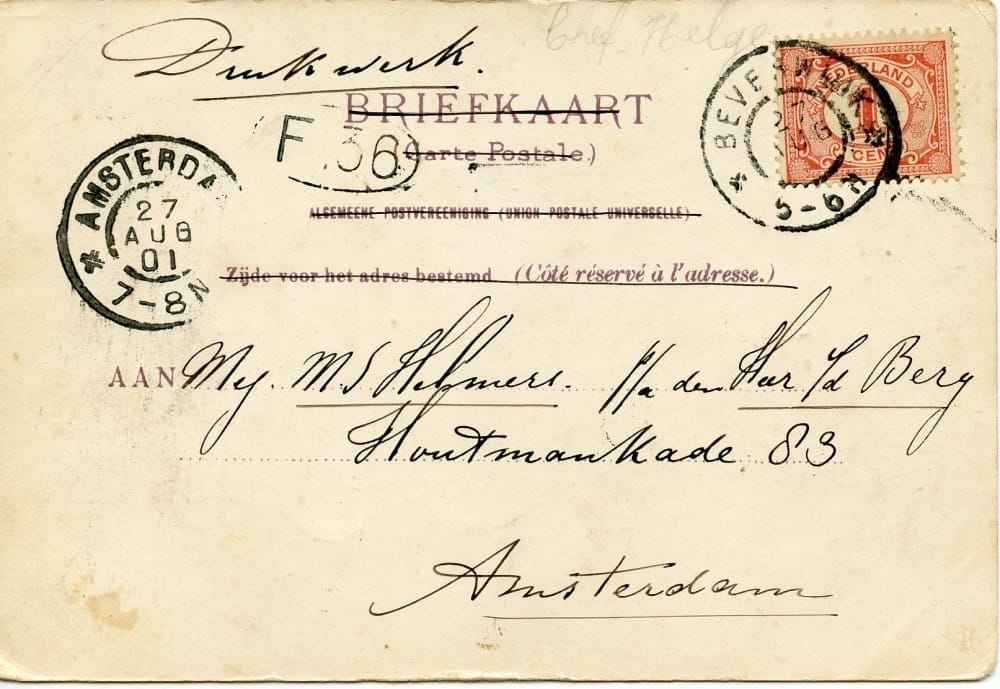 Chef
Drukwerk.
BRIEFKAART
(Carte Postale.)
F. 36
ALGEMEENE POSTVEREENIGING (UNION POSTALE UNIVERSELLE)
Zijde voor het adres bestemd (Côté réservé à l'adresse.)
BEVERWIJK
27
AUG
5-6
NEDERLAND
1
CENT
AMSTERDA
27
AUG
01
7-8N
AAN Mej. M S Helmers. p/a den Heer v/d Berg
Houtmankade 83
Amsterdam